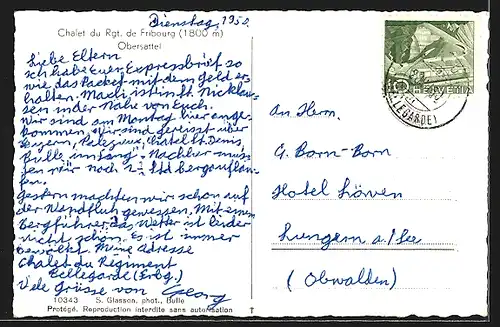 Dienstag, 1950.
Chalet du Rgt. de Fribourg (1800 m)
Obersattel
Liebe Eltern
Ich habe Euer Expressbrief so
wie das Packet mit dem Geld er
halten. Machi ist in St. Nicklau
sen in der Nähe von Euch.
Wir sind am Montag hier ange-
kommen. Wir sind gereist über
Payern, Palezieux, Châtel St. Denis,
Bulle und Jaun. Nachher muss
ten wir noch 2 Std bergauf lau-
fen.
Gestern machten wir schon auf
der Wandfluh gewesen. Mit einem
Bergführer, das Wetter ist leider
nicht schön. Es ist immer
bewölkt. Meine Adresse
Chalet du Régiment
Bellegarde (Frbg.)
Viele Grüsse von Georg
10343 S. Glasson, phot., Bulle
Protégé. Reproduction interdite sans autorisation
HELVETIA
10
An Herrn.
G. Born-Born
Hotel Löwen
Lungern a/See
(Obwalden)